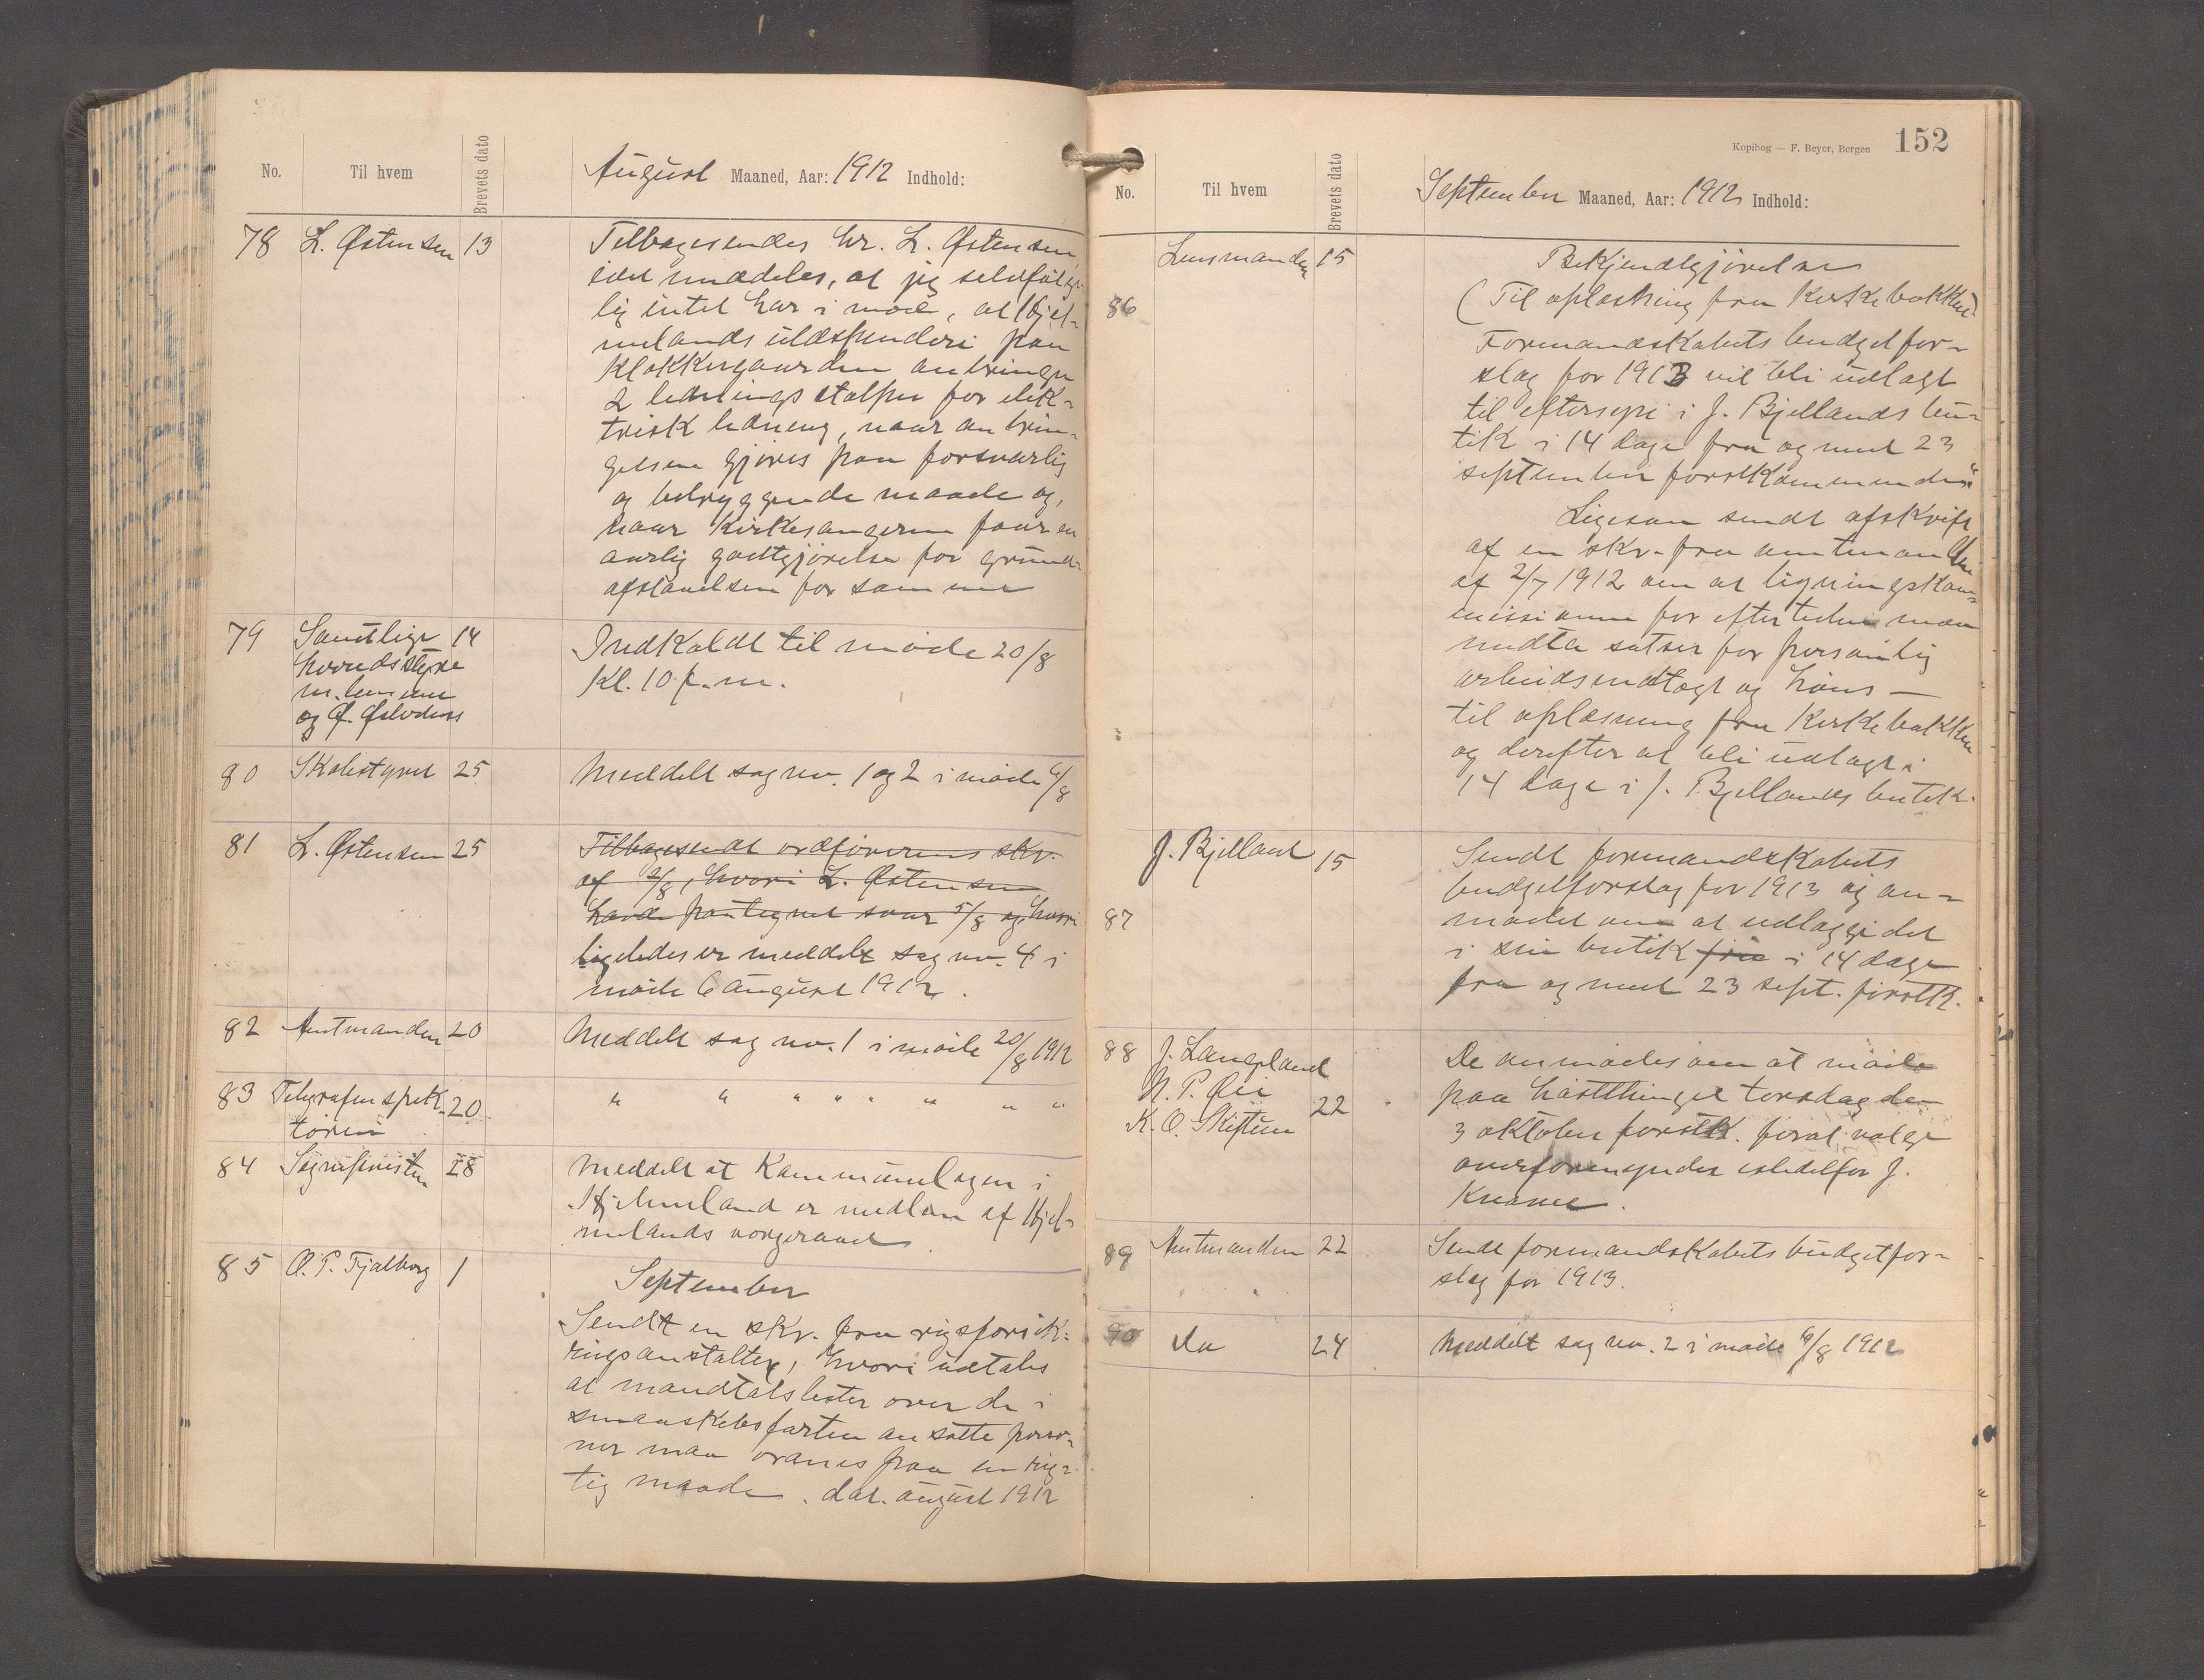 No. Til hvem Brevets dato August Maaned, Aar: 1912 Indhold:
78 L. Østensen 13 Tilbagesendes hr. L. Østensen
idet meddeles, at jeg selvfølge-
lig intet har i mod, at Hjel-
melands uldspinderi paa
Klokkergaarden anbringer
2 ledningsstolper for elek-
trisk ledning, naar anbrin-
gelsen gjøres paa forsvarlig
og betryggende maade og,
naar Kirkesangeren faar en
aarlig godtgjørelse for grund-
afstaaelsen for samme
79 Samtlige 14 Indkaldt til møde 20/8
herredsstyre Kl. 10 f.m.
m.lemmer
og
80 Skolestyret 25 Meddelt sag no. 1 og 2 i møde 6/8
81 L. Østensen 25 Tilbagesendt ordførerens skr.
af 2/8, hvori L. Østensen
havde paategnet svar 5/8 og hvori
ligeledes er meddelt sag no. 4 i
møde 6 august 1912.
82 Amtmanden 20 Meddelt sag no. 1 i møde 20/8 1912
83 Telegrafinspek- 20 " " " " " " " "
tøren
84 Sogneprsten 28 Meddelt at Kommunelægen i
Hjelmeland er medlem af Hjel-
melands vergeraad
85 O. P. Fjalborg 1 September
Sendt en skr. fra rigsforsik-
ringsanstalten, hvori udtales
at mandtalslister over de i
smaaskibsfarten ansatte perso-
ner maa ordnes paa en rig-
tig maade. dat. august 1912
Kopibog — F. Beyer, Bergen 152
No. Til hvem Brevets dato September Maaned, Aar: 1912 Indhold:
86 Lensmanden 15 Bekjendtgjørelse
(Til oplæsning fra Kirkebakken)
Formandskabets budgetfor-
slag for 1913 vil bli udlagt
til eftersyn i J. Bjellands bu-
tik i 14 dage fra og med 23
september førstkommende"
Ligesaa sendt afskrift
af en skr. fra amtmanden
af 2/7 1912 om at ligningskom-
missionen for eftertiden maa
vedta satser for personlig
arbeidsindtægt og høns —
til oplæsning fra Kirkebakken
og derefter at bli udlagt i
14 dage i J. Bjellands butik.
87 J. Bjelland 15 Sendt formandskabets
budgetforslag for 1913 og an-
modet om at udlægge det
i sin butik fra i 14 dage
fra og med 23 sept. førstk.
88 J. Langeland De anmodes om at møde
N. P. Øie 22 paa høstthinget torsdag den
K. O. Skiftun 3 oktober førstk. forat vælge
overformynder istedetfor J.
89 Amtmanden 22 Sendt formandskabets budgetfor-
slag for 1913.
90 Da 24 Meddelt sag no. 2 i møde 6/8 1912